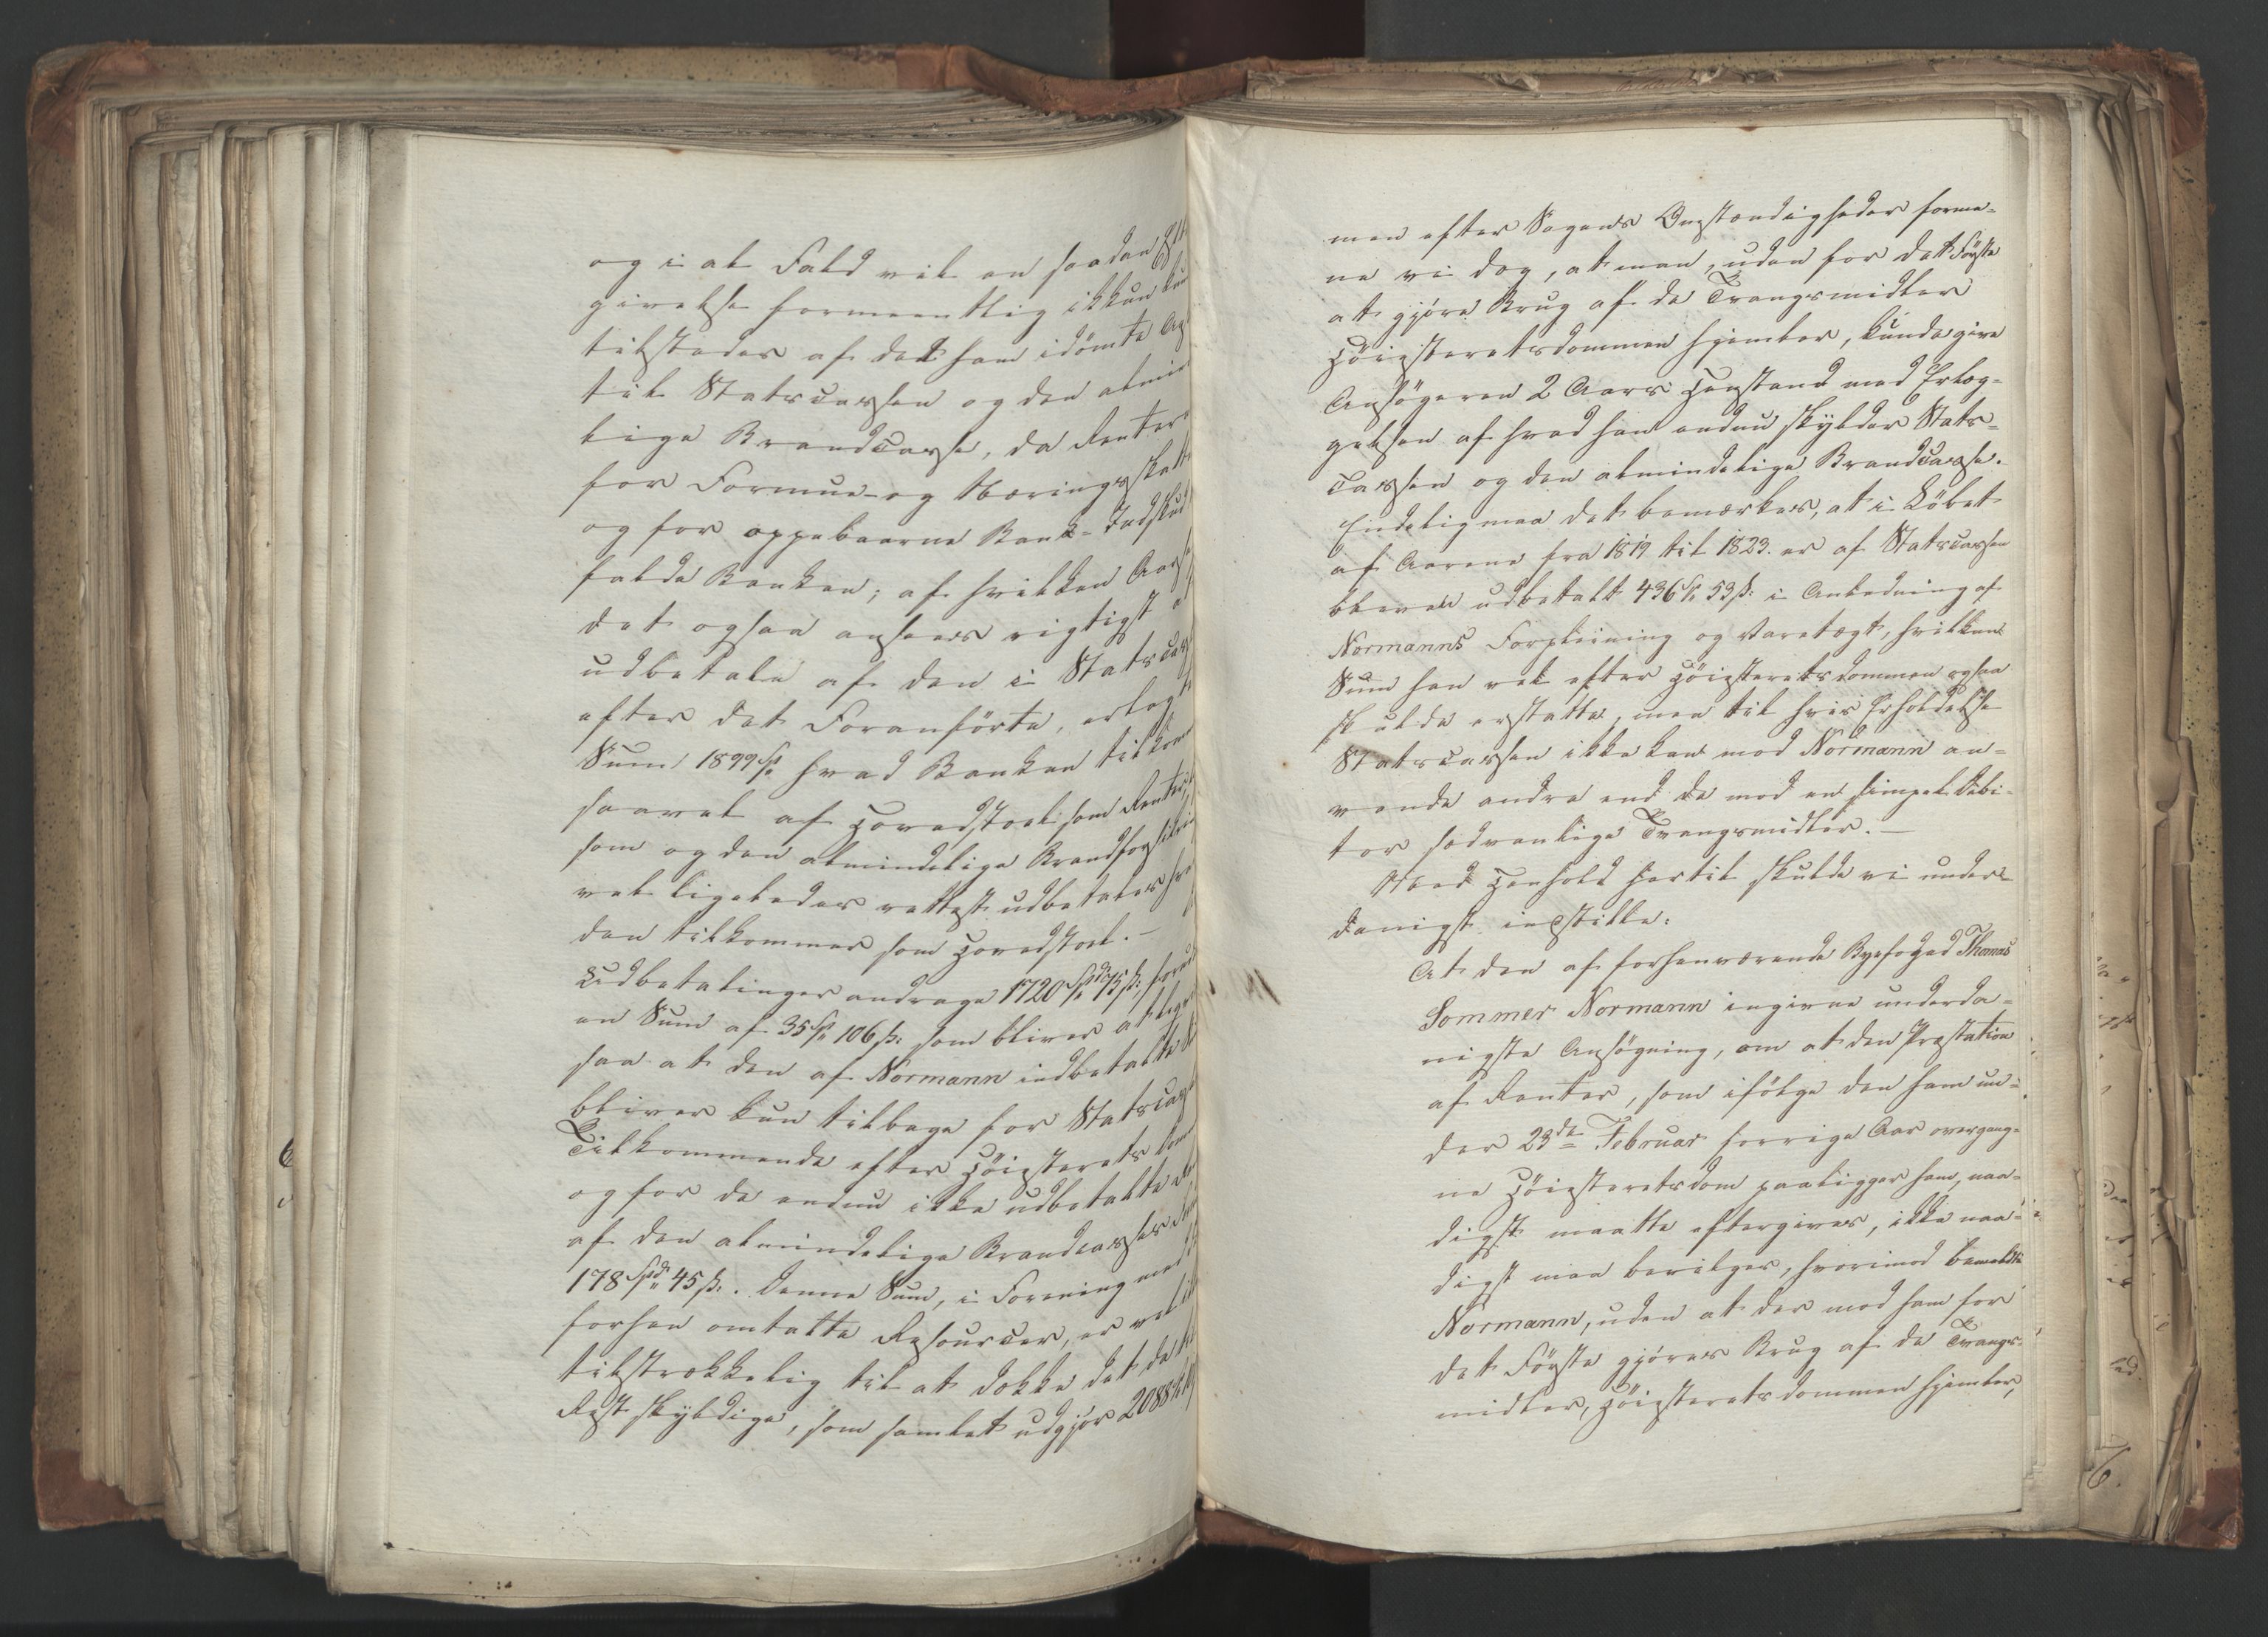 og i al Fald vil en saadan
givelse formeentlig ikkun
tilstedes af det ham idömte
til Statscassen og den almin
lige Brandcasse, da Renter
for Formue- og Næringsskatt
og for oppebaarne Bank-Indskud
falde Banken; af hvilken Aars
det ogsaa ansees rigtigst
udbetale af den i Statscas
efter det Foranförte, erlagte
Sum 1899 Sp hvad Banken tilkom
saavel af Hovedstoel som Renter,
som og den almindelige Brandforsikrin
vel ligeledes rettest udbetales
den tilkommer som Hovedstoel. –
Udbetalinger andrage 1720 Spd 75 ß,
en Sum af 35 Sp 106 ß: som bliver at
saa at den af Normann indbetalte
bliver kun tilbage for Statscas
Tilkommende efter Höiesterets
og for de endnu ikke udbetalte
af den almindelige Brandcasses
178 Spd 45 ß. Denne Sum, i Forening med
forhen omtalte Resourcer, er vel
tilstrækkelig til at dække det
Rest skyldige, som samlet udgjör 2088
men efter Sagens Omstændigheder forme-
ne vi dog, at man, uden for det Förste
at gjöre Brug af de Tvangsmidler
Höiesteretsdommen hjemler, kunde give
Ansögeren 2 Aars Henstand med Erlæg-
gelsen af hvad han endnu skylder Stats-
cassen og den almindelige Brandcasse.
Endelig maa det bemærkes, at i Löbet
af Aarene fra 1819 til 1823. er af Statscassen
bleven udbetalt 436 Sp 53 ß: i Anledning af
Normanns Forpleining og Varetægt, hvilken
Sum han vel efter Höiesteretsdommen ogsaa
skulde erstatte, men til hvis Erholdelse
Statscassen ikke kan mod Normann an-
vende andre end de mod en simpel Debi-
tor sædvanlige Tvangsmidler. –
Med Henhold hertil skulde vi under-
danigst instille:
At den af forhenværende Byefoged Thomas
Sommer Normann ingivne underda-
nigste Ansögning, om at den Præstation
af Renter, som ifölge den ham un-
der 23de Februar forrige Aar overgang-
ne Höiesteretsdom paaligger ham, naa-
digst maatte eftergives, ikke naa-
digst maa bevilges, hvorimod bemeldte
Normann, uden at der mod ham for
det Förste gjöres Brug af de Tvangs-
midler, Höiesteretsdommen hjemler,